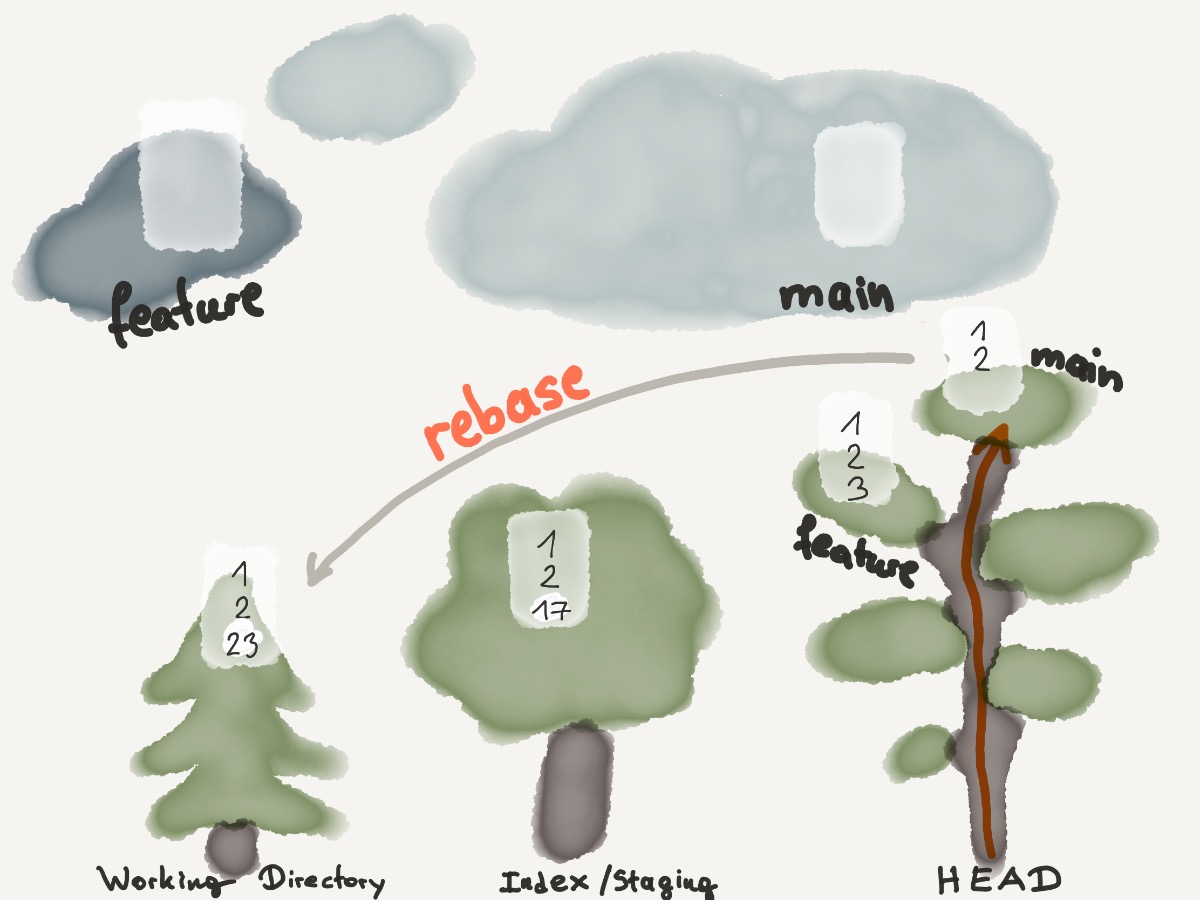 feature
main
1
2
main
rebase
1
2
3
feature
1
2
17
1
2
23
Working Directory
Index/Staging
HEAD